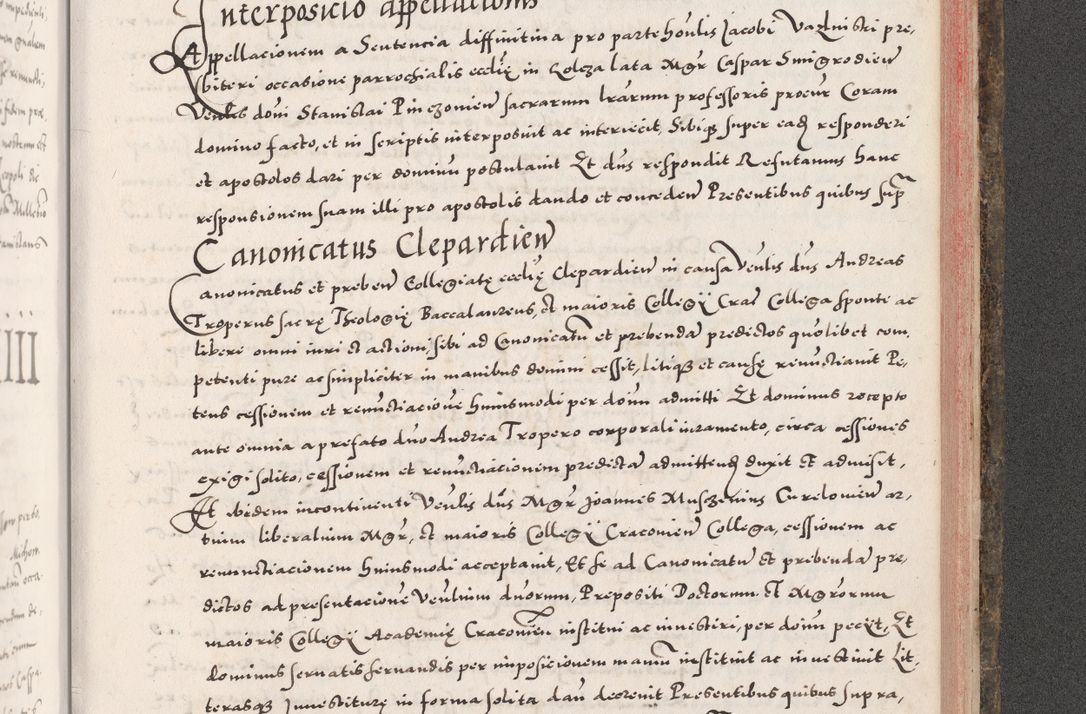 Interposicio appellacionis
Appellacionem a Sentencia diffinitiua pro parte houlis Jacobi Vazlniski pre,
sbiteri occasione parrochialis ecclię in Kolcza lata Mgr Caspar Smigrodien
Venlis dnni Stanislai Pinczonien sacrarum lrarum professoris procur Coram
domino facto, et in scriptis interposuit ac interiecit, Sibiq super eadꝫ responderi
et apostolos dari per dominū postulauit Et dns respondit Refutamus hanc
responsionem suam illi pro apostolis dando et conceden Presentibus quibus supͣ
Canonicatus Clepardien
Canonicatus et preben Collegiatę ecclię Clepardien in causa Venlis dns Andreas
Troperus sacrę Theologię Baccalaureus, et maioris Collegÿ Crac Collega sponte ac
libere omni iuri et actioni, sibi ad Canonicatū et prebendā predictos quolibet com,
petenti pure ac simpliciter in manibus domini cessit, litiqꝫ et causę renunctiauit Pe,
tens cessionem et renunctiacionē huiusmodi per dnnm admitti Et dominus recepto
ante omnia a prefato dno Andrea Tropero corporali iuramento, circa cessiones
exigi solito, cessionem et renunctiacionem predictā admittendꝫ duxit et admisit,
Et ibidem incontinenti Venlis dns Mgr Joannes Muscenius Curelouien ar,
tium liberalium Mgr, et maioris Collegÿ Cracouien Collega, cessionem ac
renunctiacionem huiusmodi acceptauit, Et se ad Canonicatū et prebendā pre,
dictos ad presentacionē Venlium dnorum, Prepositi Doctorum et Mgrorum
maioris Collegÿ Academię Cracouien institui ac inuestiri, per dnnm peciit, Et
dominus seruatis seruandis per imposicionem manuū instituit ac inuestiuit Lit,
terasqꝫ Inuestiturę in forma solita dan decreuit Presentibus quibus supra,